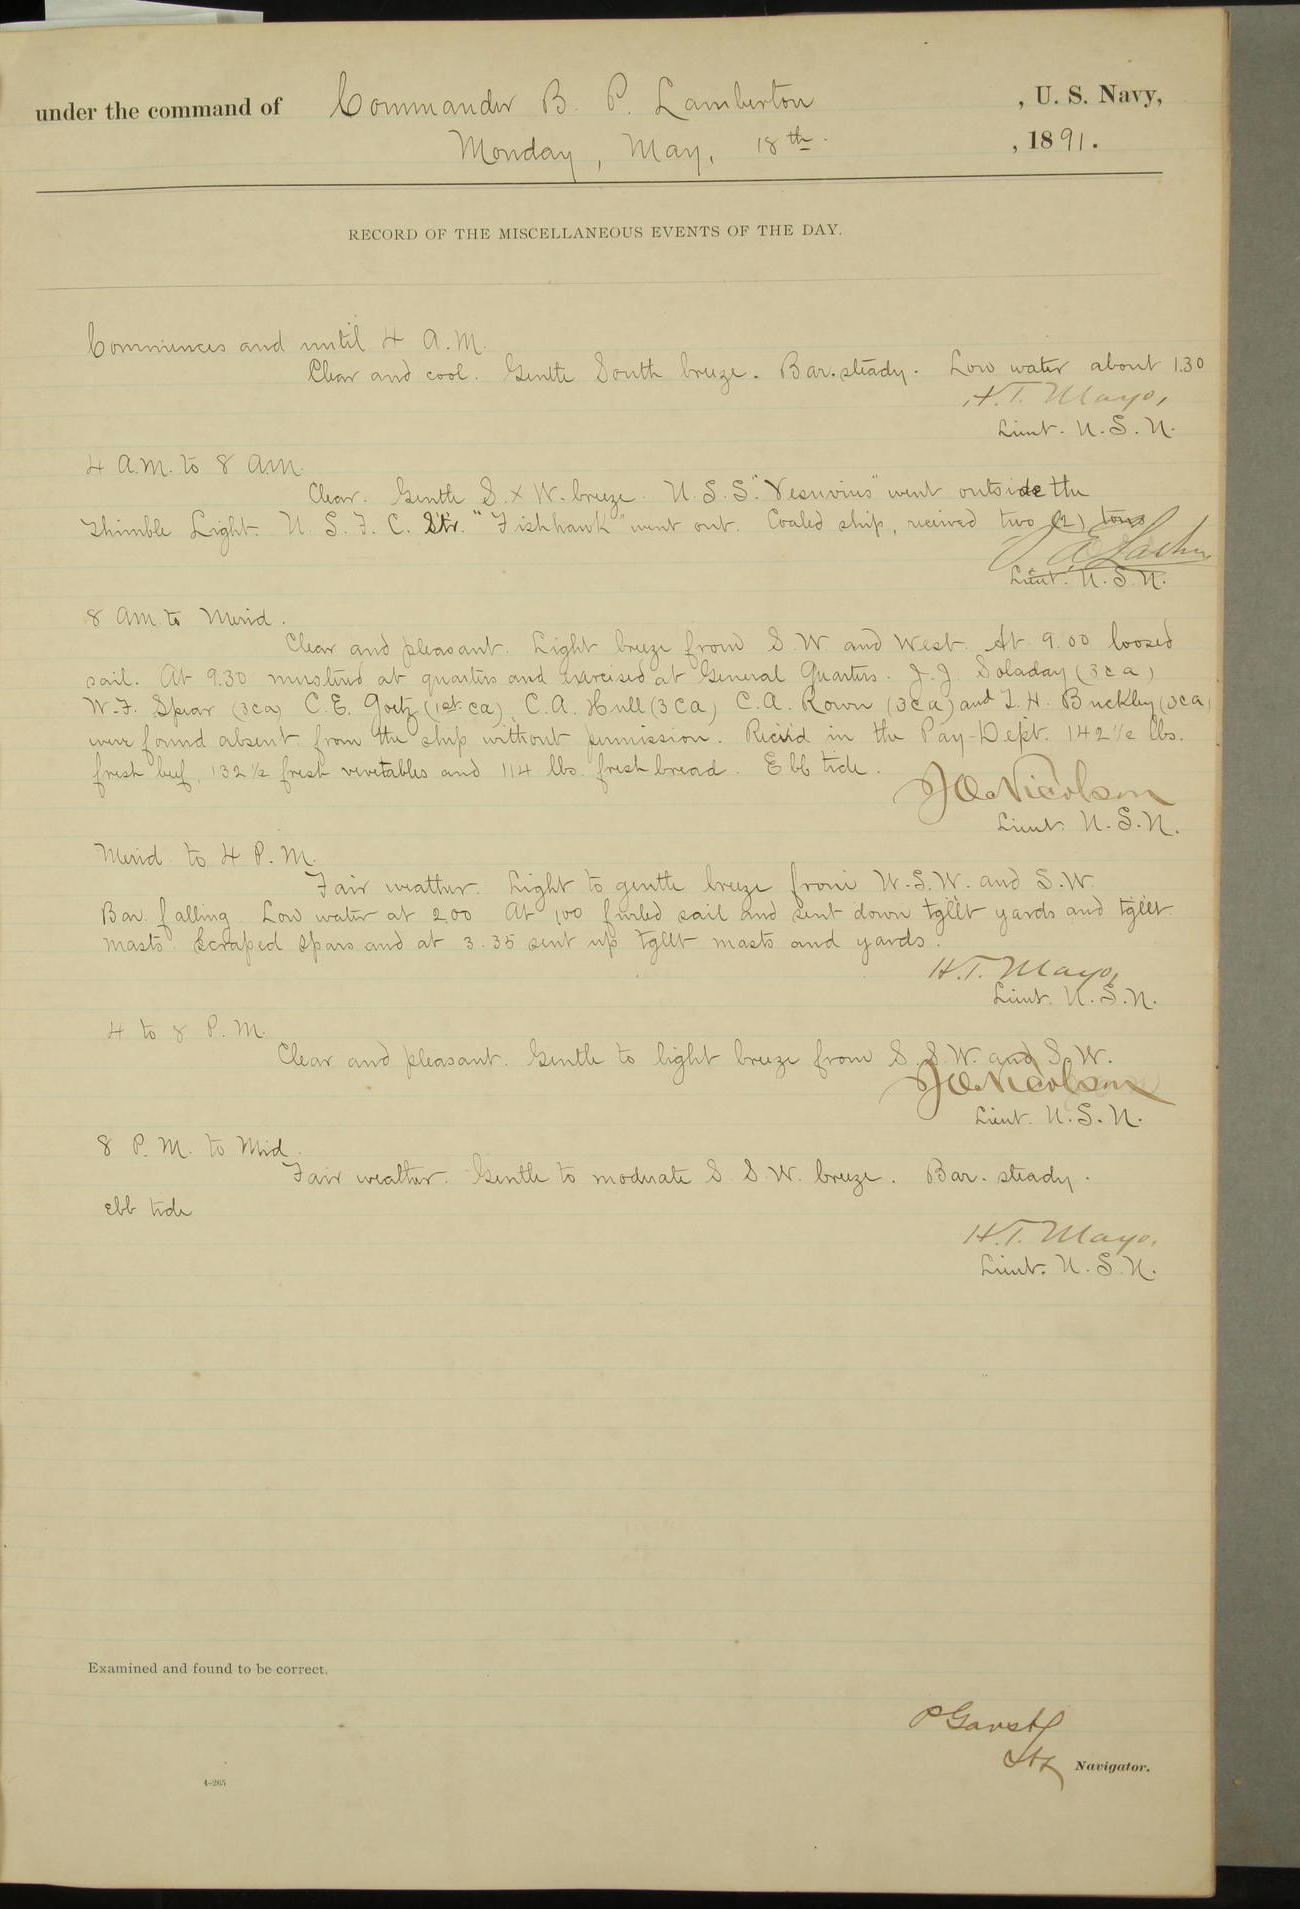 under the command of Commander B. P. Lamberton, U. S. Navy,
Monday, May, 18th. , 1891.
RECORD OF THE MISCELLANEOUS EVENTS OF THE DAY.
Commences and until 4 A.M.
Clear and cool. Gentle South breeze. Bar. steady. Low water about 1.30
H.T. Mayo,
Lieut. U.S.N.
4 A.M. to 8 A.M.
Clear. Gentle S. x W. breeze. U.S.S. "Vesuvius" went outside the
Thimble Light. U. S. F. C. Str. "Fishhawk" went out. Coaled ship, received two (2) tons
Lieut. U.S.N.
8 AM. to Merid.
Clear and pleasant. Light breeze from S.W. and West. At 9.00 loosed
sail. At 9.30 mustered at quarters and exercised at General Quarters. J.J. Soladay (3ca)
W.F. Spear (3ca) C.E. Goetz (1st ca), C.A. Hull (3ca) C.A. Rown (3ca) and T.H. Buckley (3ca)
were found absent from the ship without permission. Reciv'd in the Pay-Dept. 142 1/2 lbs.
fresh beef, 132 1/2 fresh vevetables and 114 lbs. fresh bread. Ebb tide.
J O Nicolson
Lieut. U.S.N.
Merid. to 4 P.M.
Fair weather. Light to gentle breeze from W.S.W. and S.W.
Bar. falling. Low water at 2.00 At 1.00 furled sail and sent down tgllt yards and tgllt.
masts. Scraped spars and at 3.35 sent up tgllt masts and yards.
H.T. Mayo,
Lieut. U.S.N.
4 to 8 P.M.
Clear and pleasant. Gentle to light breeze from S.S.W. and S.W.
J O Nicolson
Lieut. U.S.N.
8 P.M. to Mid.
Fair weather. Gentle to moderate S.S.W. breeze. Bar. steady.
ebb tide
H.T. Mayo,
Lieut. U.S.N.
Examined and found to be correct.
P Garst
Lt Navigator.
4-265